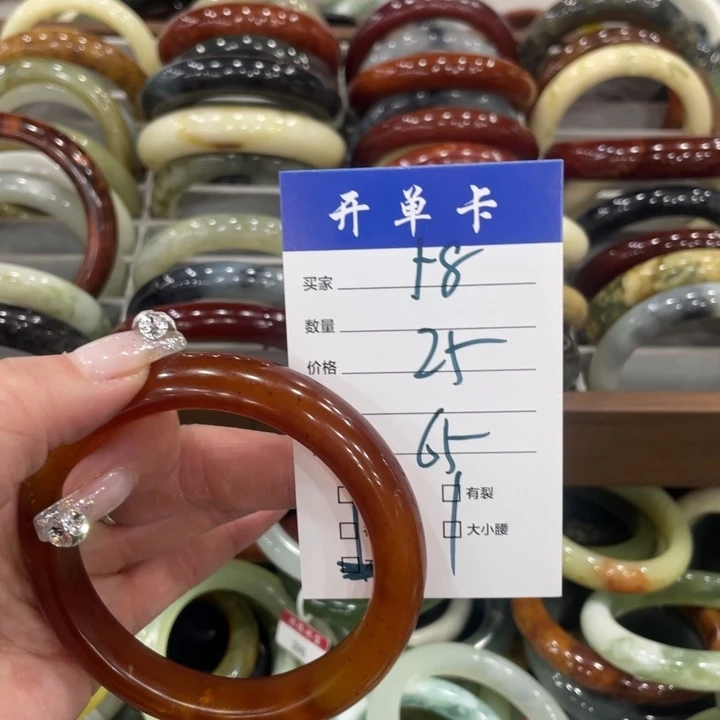 开单卡
买家 58
数量
价格 25
65
有裂
大小腰